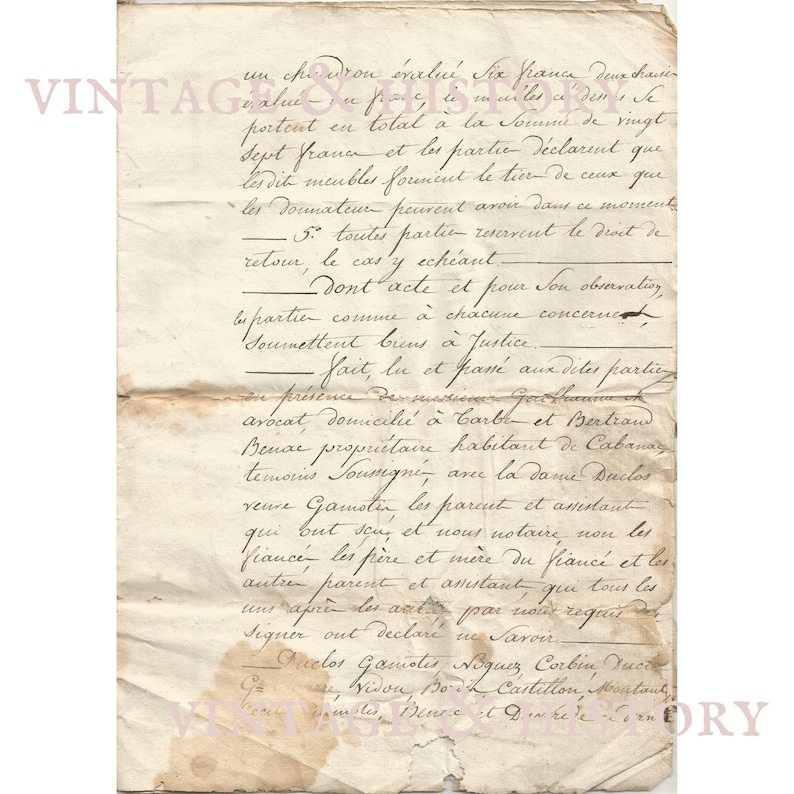 un chaudron évalué Six francs deux chaises
VINTAGE & HISTORY
évalué un franc, les meubles ci dessus Se
portent en total à la Somme de vingt
Sept francs et les parties déclarent que
lesdits meubles forment le tiers de ceux que
les donnateurs peuvent avoir dans ce moment
5.º toutes parties reservent le droit de
retour, le cas y echéant
Dont acte et pour Son observation,
les parties comme à chacune concernent
Soumettent biens à Justice.
fait, lu et passé auxdites parties
en présence De messieurs
avocat domicilié à Tarbes et Bertrand
Benac propriétaire habitant de Cabanac,
temoins Soussignés, avec la dame Duclos
veuve Gamotis, les parents et assistants
qui ont sçu, et nous notaire, non les
fiancés les père et mère du fiancé et les
autres parents et assistants, qui tous les
uns après les autres par nous requis de
signer ont déclaré ne Savoir.
Duclos Gamotis, Corbin,
Vidou, Castillon, Montaut,
VINTAGE & HISTORY
Benac et